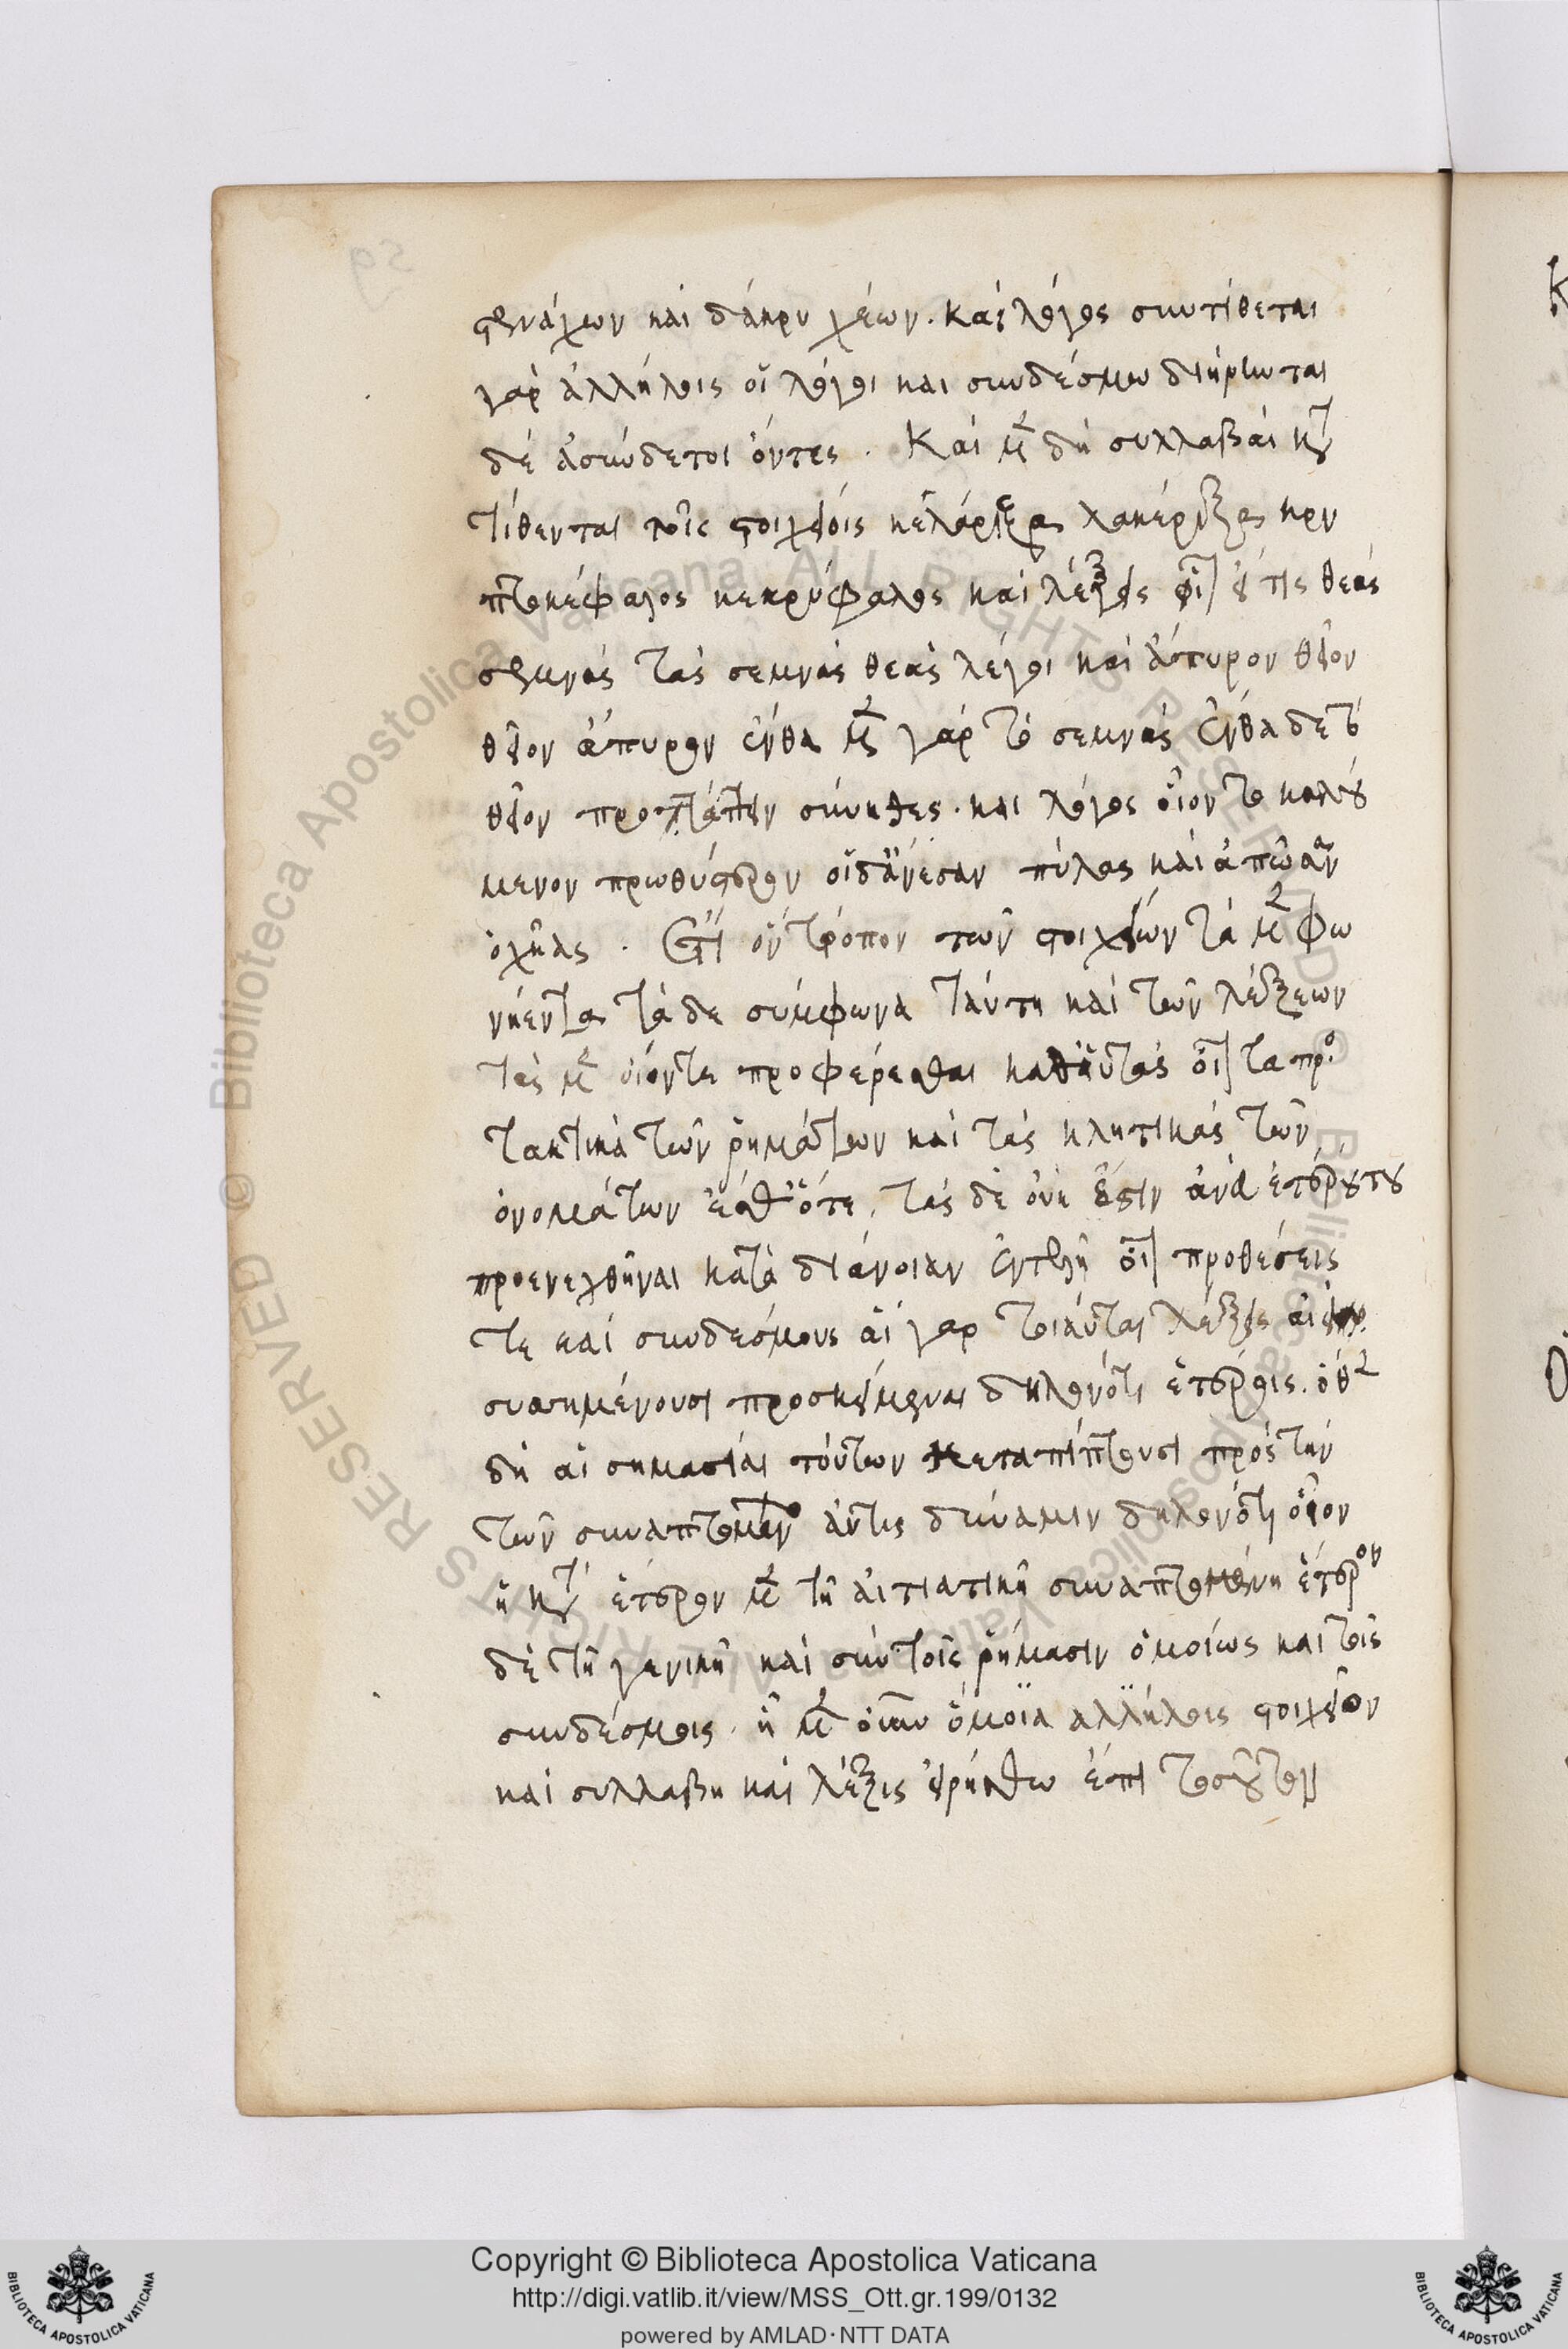 στενάχων καὶ δάκρυ χέων. Καὶ λόγος συντίθεται
γαρ ἀλλήλοις οἱ λόγοι και συνδέσμω διήρηνται
δέ ἀσύνδετοι ὄντες. Καὶ μ(ὲν) δὴ συλλαβαὶ
τίθενται τοῖς στοιχείοις
κέφαλος κεκρύφαλος καὶ λέξεις τῆς θεὰς
σεμνάς τὰς σεμνάς θεάς λέγοι καὶ ἄπυρον θεῖον
θεῖον ἄπυρον ἔνθα μ(ὲν) γάρ τὸ σεμνάς ἔνθα δε τὸ
θεῖον προτάττειν σύνηθες. και λόγος οἷον το καλού
μενον πρωθύστερον οἵδ' ἄνεσαν πύλας καὶ ἀπῶσαν
ὀχῆας. Ἔτι ὃν τρόπον τῶν στοιχείων τὰ μ(ὲν) φω
νήεντα τὰ δε σύμφωνα ταύτη καὶ τῶν λέξεων
τὰς μ(ὲν) οἷόν τε προφέρεσθαι καθ' αὑτάς τα προσ
τακτικὰ τῶν ῥημάτων καὶ τὰς κλητικάς τῶν
ὀνομάτων ἐσθ' ὅτε, τὰς δὲ οὐκ ἔστιν ἄνευ ἑτέρου του
προενεχθῆναι κατὰ διάνοιαν ἐντελῆ προθέσεις
τε καὶ συνδέσμους αἱ γαρ τοιαῦται λέξεις ἀεὶ
συσσημαίνουσι προσκείμεναι δηλονότι ἑτέροις. ὅθεν
δὴ αἱ σημασίαι τούτων μεταπίπτουσι πρὸς τὴν
τῶν συναπτομένων αὐταῖς δύναμιν δηλονότι οἷον
ἡ κατὰ ἕτερον μ(ὲν) τῆ αἰτιατικῆ συναπτομένη ἕτερον
δὲ τῆ γενικῆ καὶ σὺν τοῖς ῥήμασιν ὁμοίως και τοῖς
συνδέσμοις. ἧ μ(ὲν) οὖν ὅμοια ἀλλήλοις στοιχεῖον
καὶ συλλαβη καὶ λέξις εἰρήσθω ἐπὶ τοσοῦτον
Copyright © Biblioteca Apostolica Vaticana
http://digi.vatlib.it/view/MSS_Ott.gr.199/0132
powered by AMLAD·NTT DATA